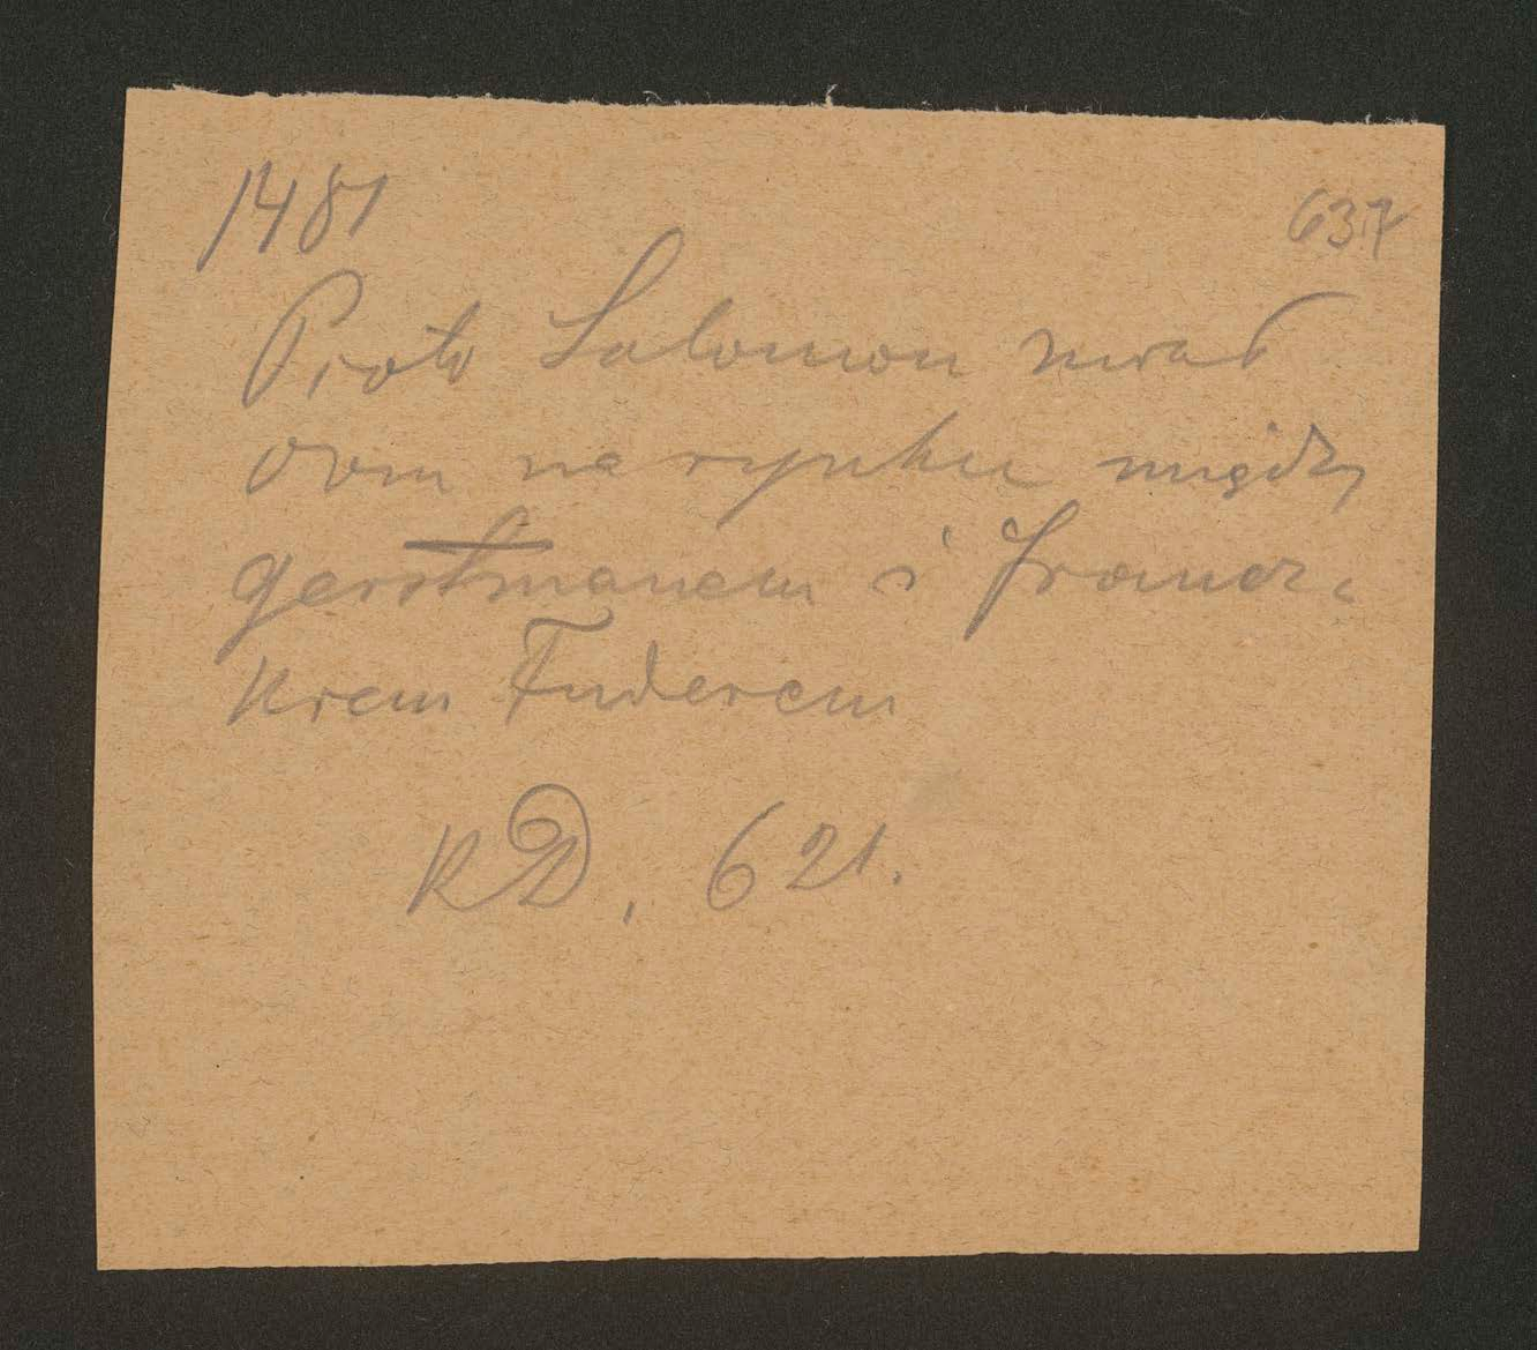 1481 637
Piotr Salomon miał
dom na rynku między
Gerstmanem i Francz.
Krem Fuderem
KD, 621.